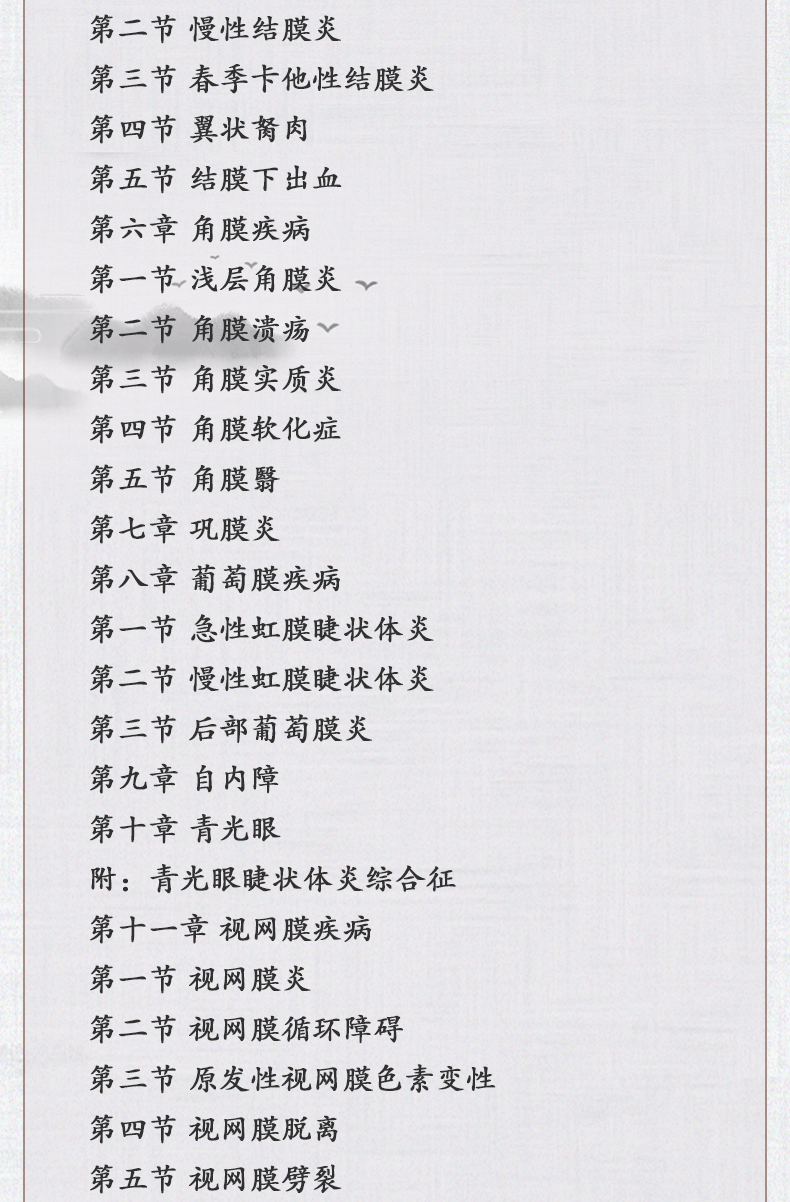 第二节 慢性结膜炎
第三节 春季卡他性结膜炎
第四节 翼状胬肉
第五节 结膜下出血
第六章 角膜疾病
第一节 浅层角膜炎
第二节 角膜溃疡
第三节 角膜实质炎
第四节 角膜软化症
第五节 角膜翳
第七章 巩膜炎
第八章 葡萄膜疾病
第一节 急性虹膜睫状体炎
第二节 慢性虹膜睫状体炎
第三节 后部葡萄膜炎
第九章 自内障
第十章 青光眼
附：青光眼睫状体炎综合征
第十一章 视网膜疾病
第一节 视网膜炎
第二节 视网膜循环障碍
第三节 原发性视网膜色素变性
第四节 视网膜脱离
第五节 视网膜劈裂